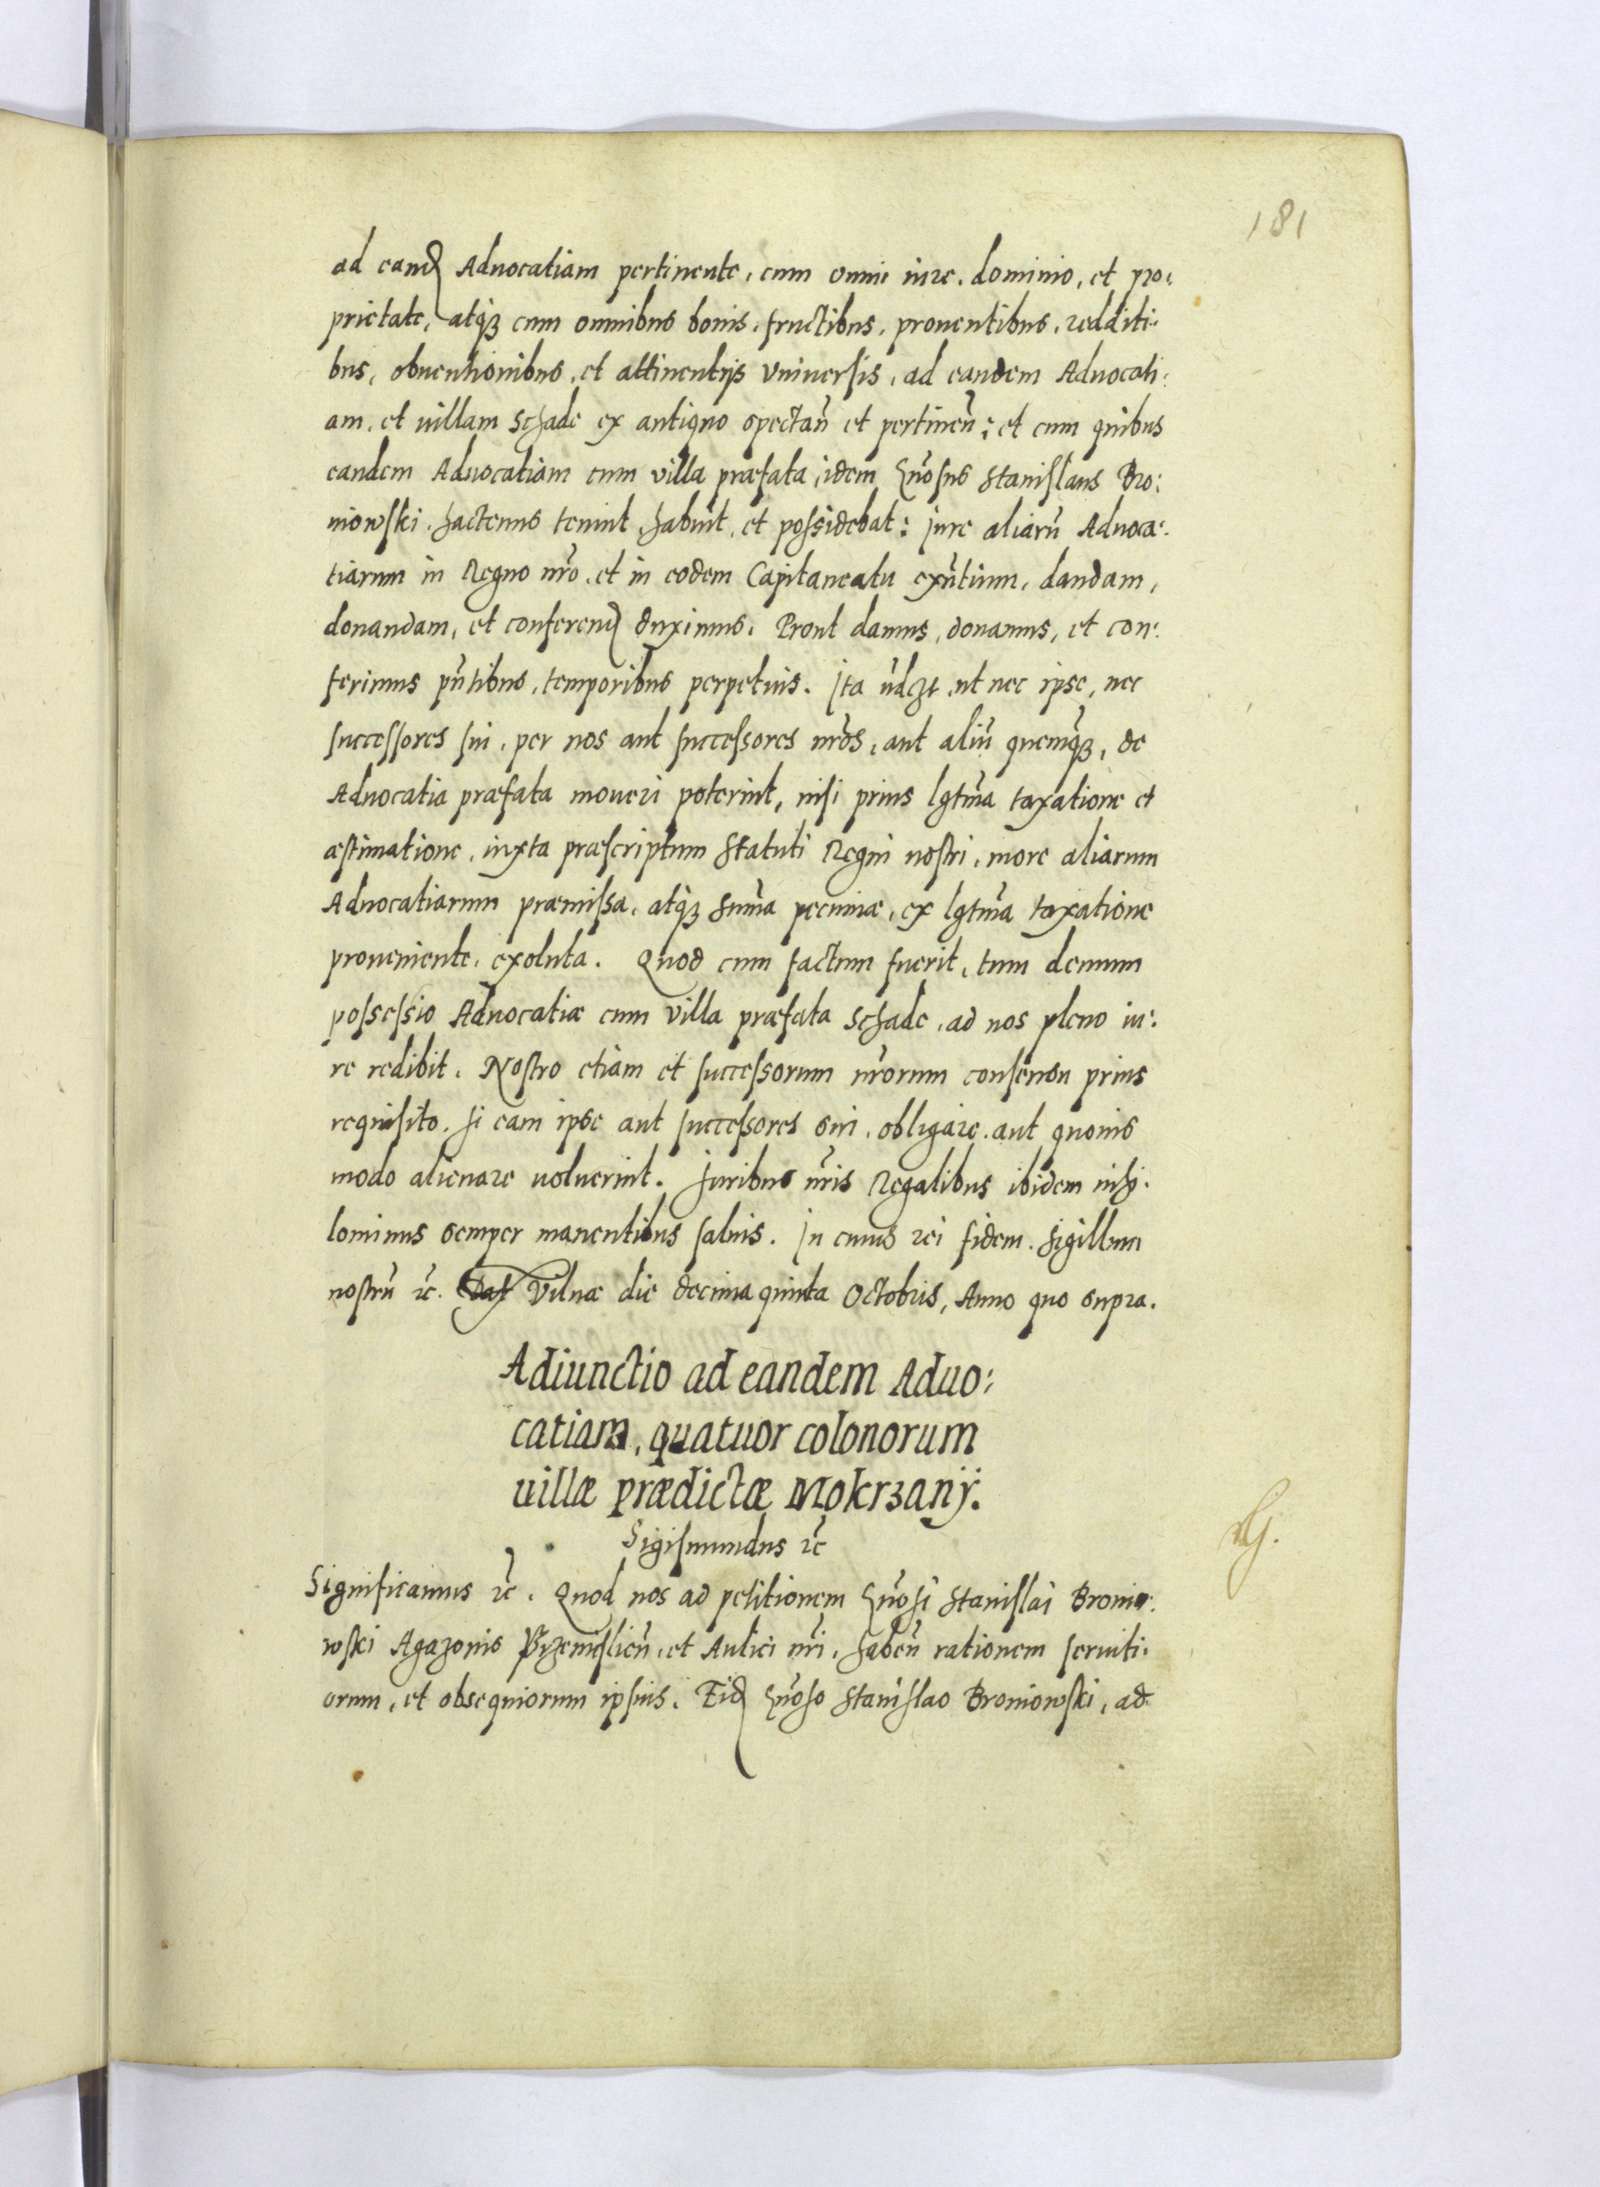 181
ad eand Aduocatiam pertinente, cum omni iure, dominio, et pro:
prietate, atq3 cum omnibus bonis, fructibus, prouentibus, redditi:
bus, obuentionibus, et attinentijs vniuersis, ad eandem Aduocati:
am, et uillam Schade ex antiquo spectañ et pertineñ: et cum quibus
eandem Aduocatiam cum villa præfata, idem gñosus Stanislaus Bro:
niowski, hactenus tenuit, habuit, et possidebat: iure aliarũ Aduoca:
tiarum in Regno nr̃o, et in eodem Capitaneatu exñtium, dandam,
donandam, et conferend duximus. Prout damus, donamus, et con:
ferimus pñtibus, temporibus perpetuis. Ita ũdczt, ut nec ipse, nec
successores sui, per nos aut successores nr̃os, aut aliũ quemq̃3, de
Aduocatia præfata moueri poterint, nisi prius lgtm̃a taxatione et
æstimatione, iuxta præscriptum Statuti Regni nostri, more aliarum
Aduocatiarum præmissa, atq3 sum̃a pecuniæ, ex lgtm̃a taxatione
proueniente, exoluta. Quod cum factum fuerit, tum demum
possessio Aduocatiæ cum villa præfata Schade, ad nos pleno iu:
re redibit. Nostro etiam et successorum nr̃orum consensu prius
requisito, si eam ipse aut successores sui, obligare, aut quouis
modo alienare uoluerint. Juribus nr̃is Regalibus ibidem nihi:
lominus semper manentibus saluis. In cuius rei fidem. Sigillum
nostrũ ꝛc̃. Dat Vilnæ die decima quinta Octobris, Anno quo supra.
Adiunctio ad eandem Aduo:
catiam, quatuor colonorum
uillæ prædictæ Mokrzanÿ.
Sigismundus ꝛc̃
Significamus ꝛc̃. Quod nos ad petitionem gñosi Stanislai Bronio:
wski Agazonis Przemislieñ, et Aulici nr̃i, habeñ rationem seruiti:
orum, et obsequiorum ipsius. Eid gñoso Stanislao Broniowski, ad